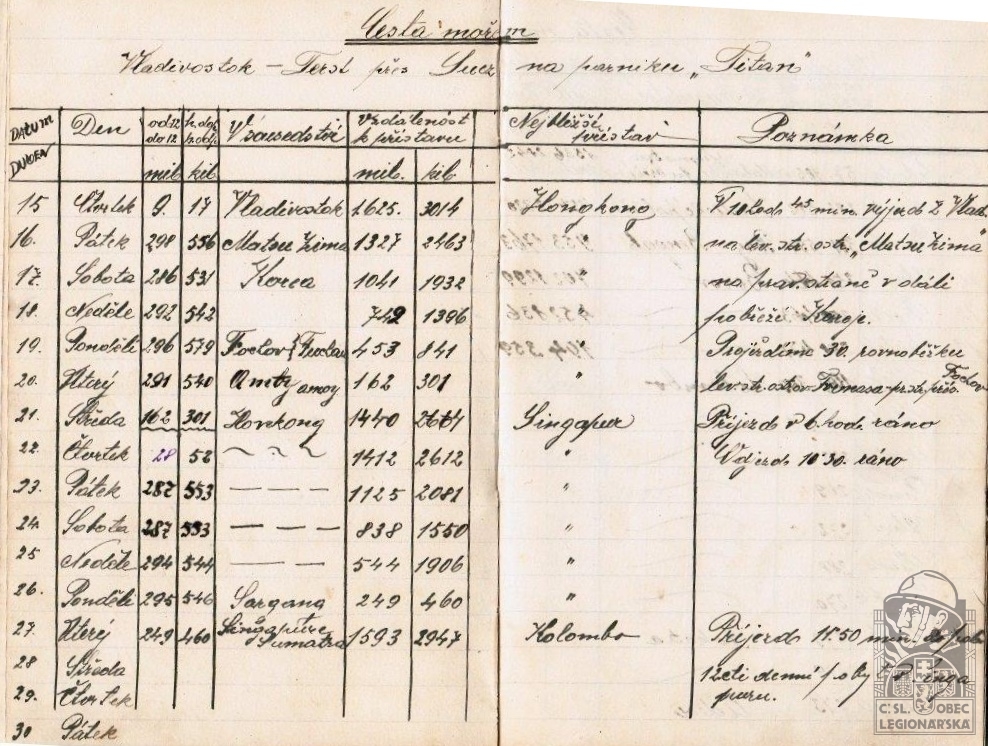 Cesta mořem
Vladivostok – Terst přes Suez na parníku „Titan"
DATUM Den od 12 do 12 V sousedství Vzdálenost k přístavu Nejbližší přístav Poznámka
DUBEN mil kil mil. kil
15 Čtvrtek 9. 17 Vladivostok 1625. 3014 Hongkong V 10 hod 45 min. výjezd z Vlad.
16. Pátek 298 556 Matsu žima 1327 2463 na lev. str. ostr. „Matsu žima"
17. Sobota 286 531 Korea 1041 1932 na prav. straně v dáli
18. Neděle 292 542 749 1396 pobřeží Koreje.
19. Pondělí 296 579 453 841 Projíždíme 30. rovnoběžku
20. Úterý 291 540 amoy 162 301 " lev. str. ostrov Formosa
21. Středa 162 301 Honkong 1440 2664 Singapur Příjezd v 6. hod. ráno
22. Čtvrtek 28 52 1412 2612 " Odjezd 10 30. ráno
23. Pátek 287 553 — — — 1125 2081 "
24. Sobota 287 553 — — — 838 1550 "
25 Neděle 294 544 — — — 544 1906 "
26. Pondělí 295 546 Sargang 249 460 "
27. Úterý 249 460 Singapure Sumatra 1593 2947 Kolombo Příjezd 11 50 min.
28 Středa 12cti denní pobyt
29. Čtvrtek
30 Pátek
ČSL. OBEC
LEGIONÁŘSKÁ